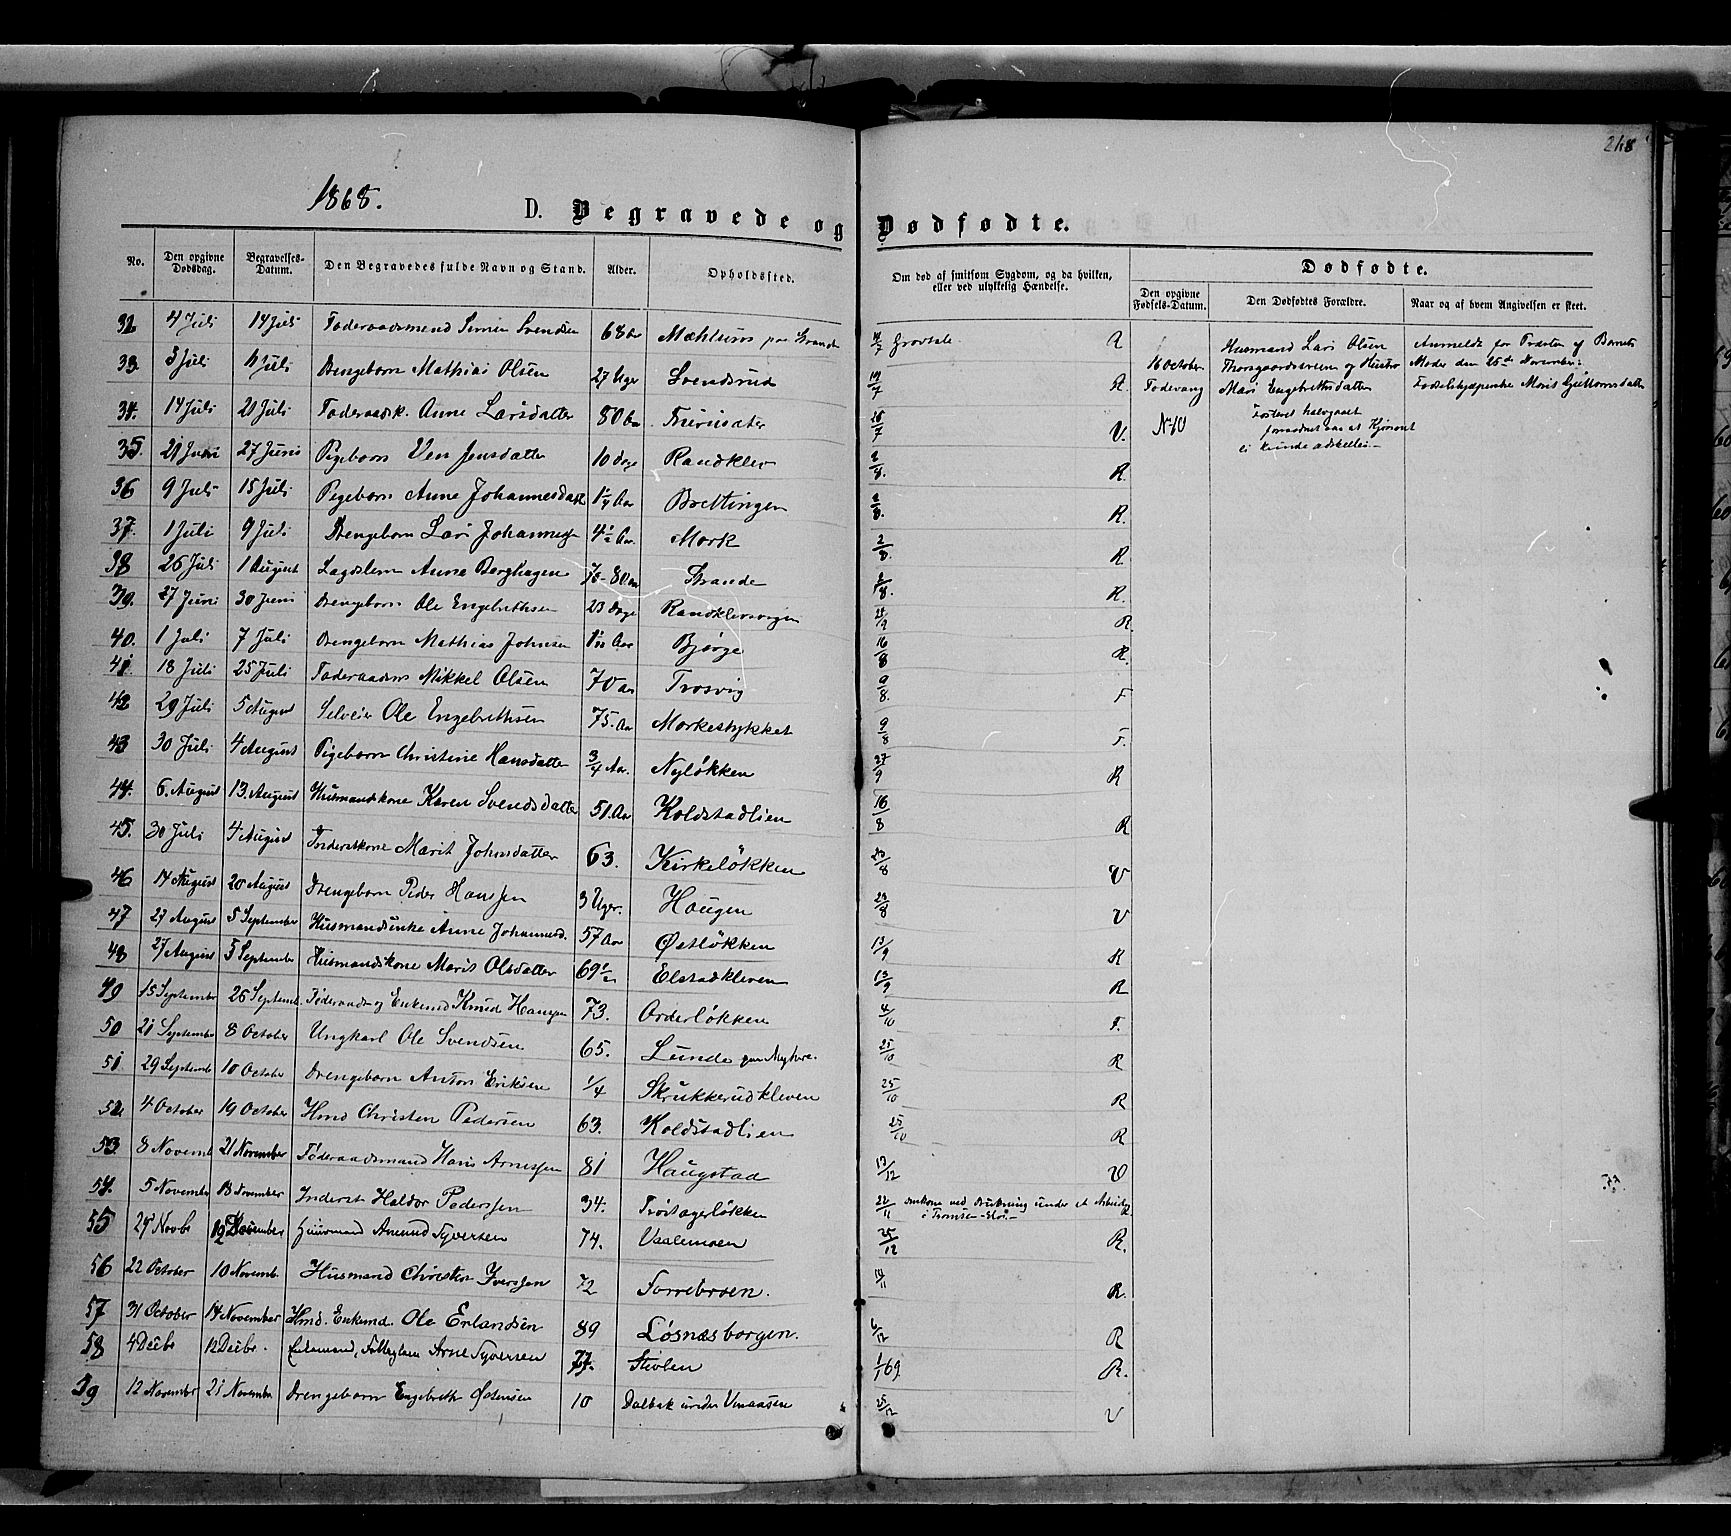 248
1868.
D. Begravede og Dødfødte.
No. Den opgivne Dødsdag. Begravelses-Datum. Den Begravedes fulde Navn og Stand. Alder. Opholdssted. Om død af smitsom Sygdom, og da hvilken, eller ved ulykkelig Hændelse. Dødfødte.
Den opgivne Fødsels-Datum. Den Dødfødtes Forældre. Naar og af hvem Angivelsen er skeet.
32 4 Juli 14 Juli Svendsen 68 Aar Mæhlum paa R
33. 3 Juli 11 Juli Drengebarn Mathias Olsen 27 Uger Svendsrud 19/7 R.
34. 14 Juli 21 Juli Føderaadsk. Anne Larsdatter 80 Aar V.
35. 21 Juni 27 Juni Pigebarn Jensdatter 10 Dage Randklev 2/8. R.
36 9 Juli 15 Juli Pigebarn Anne Johannesdatt 1 1/4 Aar Brettingen 2/8. R.
37. 1 Juli 9 Juli Drengebarn Lars Johannes 4 1/2 Aar Mork 2/8. R.
38 26 Juli 1 August Lægdslem Anne Berghagen 70-80 Aar Strande 2/8. R.
39. 27 Juni 30 Juni Drengebarn Ole Engebrethsen 23 Dage R.
40. 1 Juli 7 Juli Drengebarn Mathias Johnsen Aar Bjørge 16/8 R.
41. 18 Juli 25 Juli Føderaadsm Mikkel Olsen 70 Aar Trosvig 9/8. F
42 29 Juli 5 August Selveier Ole Engebrethsen 75. Aar Morkestykket 9/8 F.
43 30 Juli 4 August Pigebarn Christine Hansdatter 3/4 Aar. Nyløkken 27/9 R
44. 6. August 13. August Husmandskone Karen Svendsdatter 51. Aar Koldstadlien 16/8 R
45. 30 Juli 4 August Inderstkone Marit Johnsdatter 63. Kirkeløkken 23/8 V
46 14 August 20 August Drengebarn Peder Hanssen 3 Uger. Haugen 23/8 V
47 27 August 5 September Husmandsenke Anne Johannesd. 57 Aar Østløkken 13/9 R
48 27 August 5 September Husmandskone Marit Olsdatter 69 1/2 Elstadkleven 13/9 R
49 15 September 26 Septemb. Føderaads og Enkemd Knud Hanssen 73. Orderløkken 4/10 F.
50 21 September 8 October Ungkarl Ole Svendsen 65. Lunde 25/10 R
51. 29 Septemb 10 October Drengebarn Anton Eriksen 1/4 Skrukkerudkleven 25/10 R
52. 4 October 19 October Hmd Christen Pedersen 63. Koldstadlien 25/10 R
53. 8 Novemb 21 November Føderaadsmand Hans Arnessen 81 Haugstad 13/12 V
54. 5 November 18 November Inderst Haldor Pederssen 34. Trøstagerløkken 22/11 omkom ved Drukning under et Arbeide
55 24 Novbr 12 December Huusmand Amund Syversen 74. Vaalemoen 25/12 R.
56 22 October 10 Novemb. Husmand Christen Iverssen 72 R.
57 31 October 14 November Hmd. Enkemd. Ole Erlandsen 89 Løsnæsborgen. 6/12 R
58 4 Decbr 12 Decbr. Enkemand, Fattiglem Arne Syversen 77. Stivlen 1/1 69. R.
59 12 November 21 Novembe Drengebarn Engebreth Østensen 10 Dalbak under Vinaasen 25/12 V
16 October Husmand Lars Olsen Anmeldt for Præsten af Barnets
og Hustru Moder den 25de November.
Mari Engebrethsdatter
No 10 Fosteret halvgaaet
saa at Kjønnet
ei kunde adskilles.